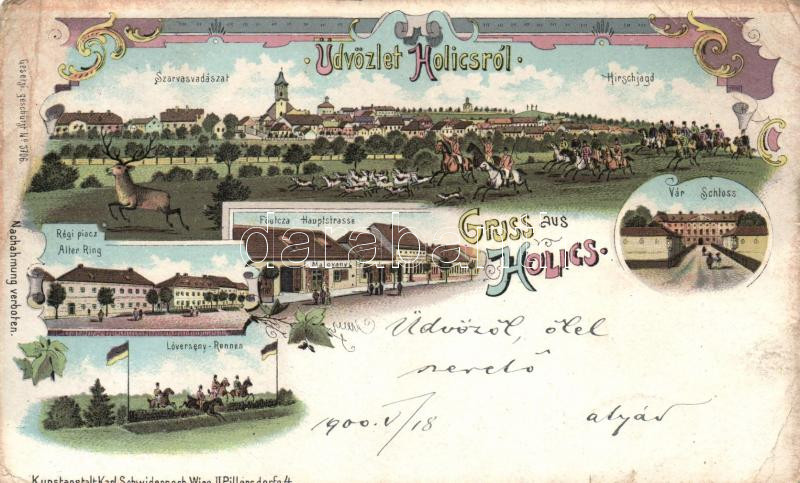 Üdvözlet Holicsról
Szarvasvadászat
Hirschjagd
Gesetzl. geschützt No 5706.
Nachahmung verboten.
Régi piacz
Alter Ring
Főutcza Hauptstrasse
Malovany
Gruss aus
Holics.
Vár Schloss
Lóverseny-Rennen
darabanth
Üdvözöl, ölel
szerető
atyád
1900. V/18
Kunstanstalt Karl Schwidernoch Wien II Pillersdorfg 4